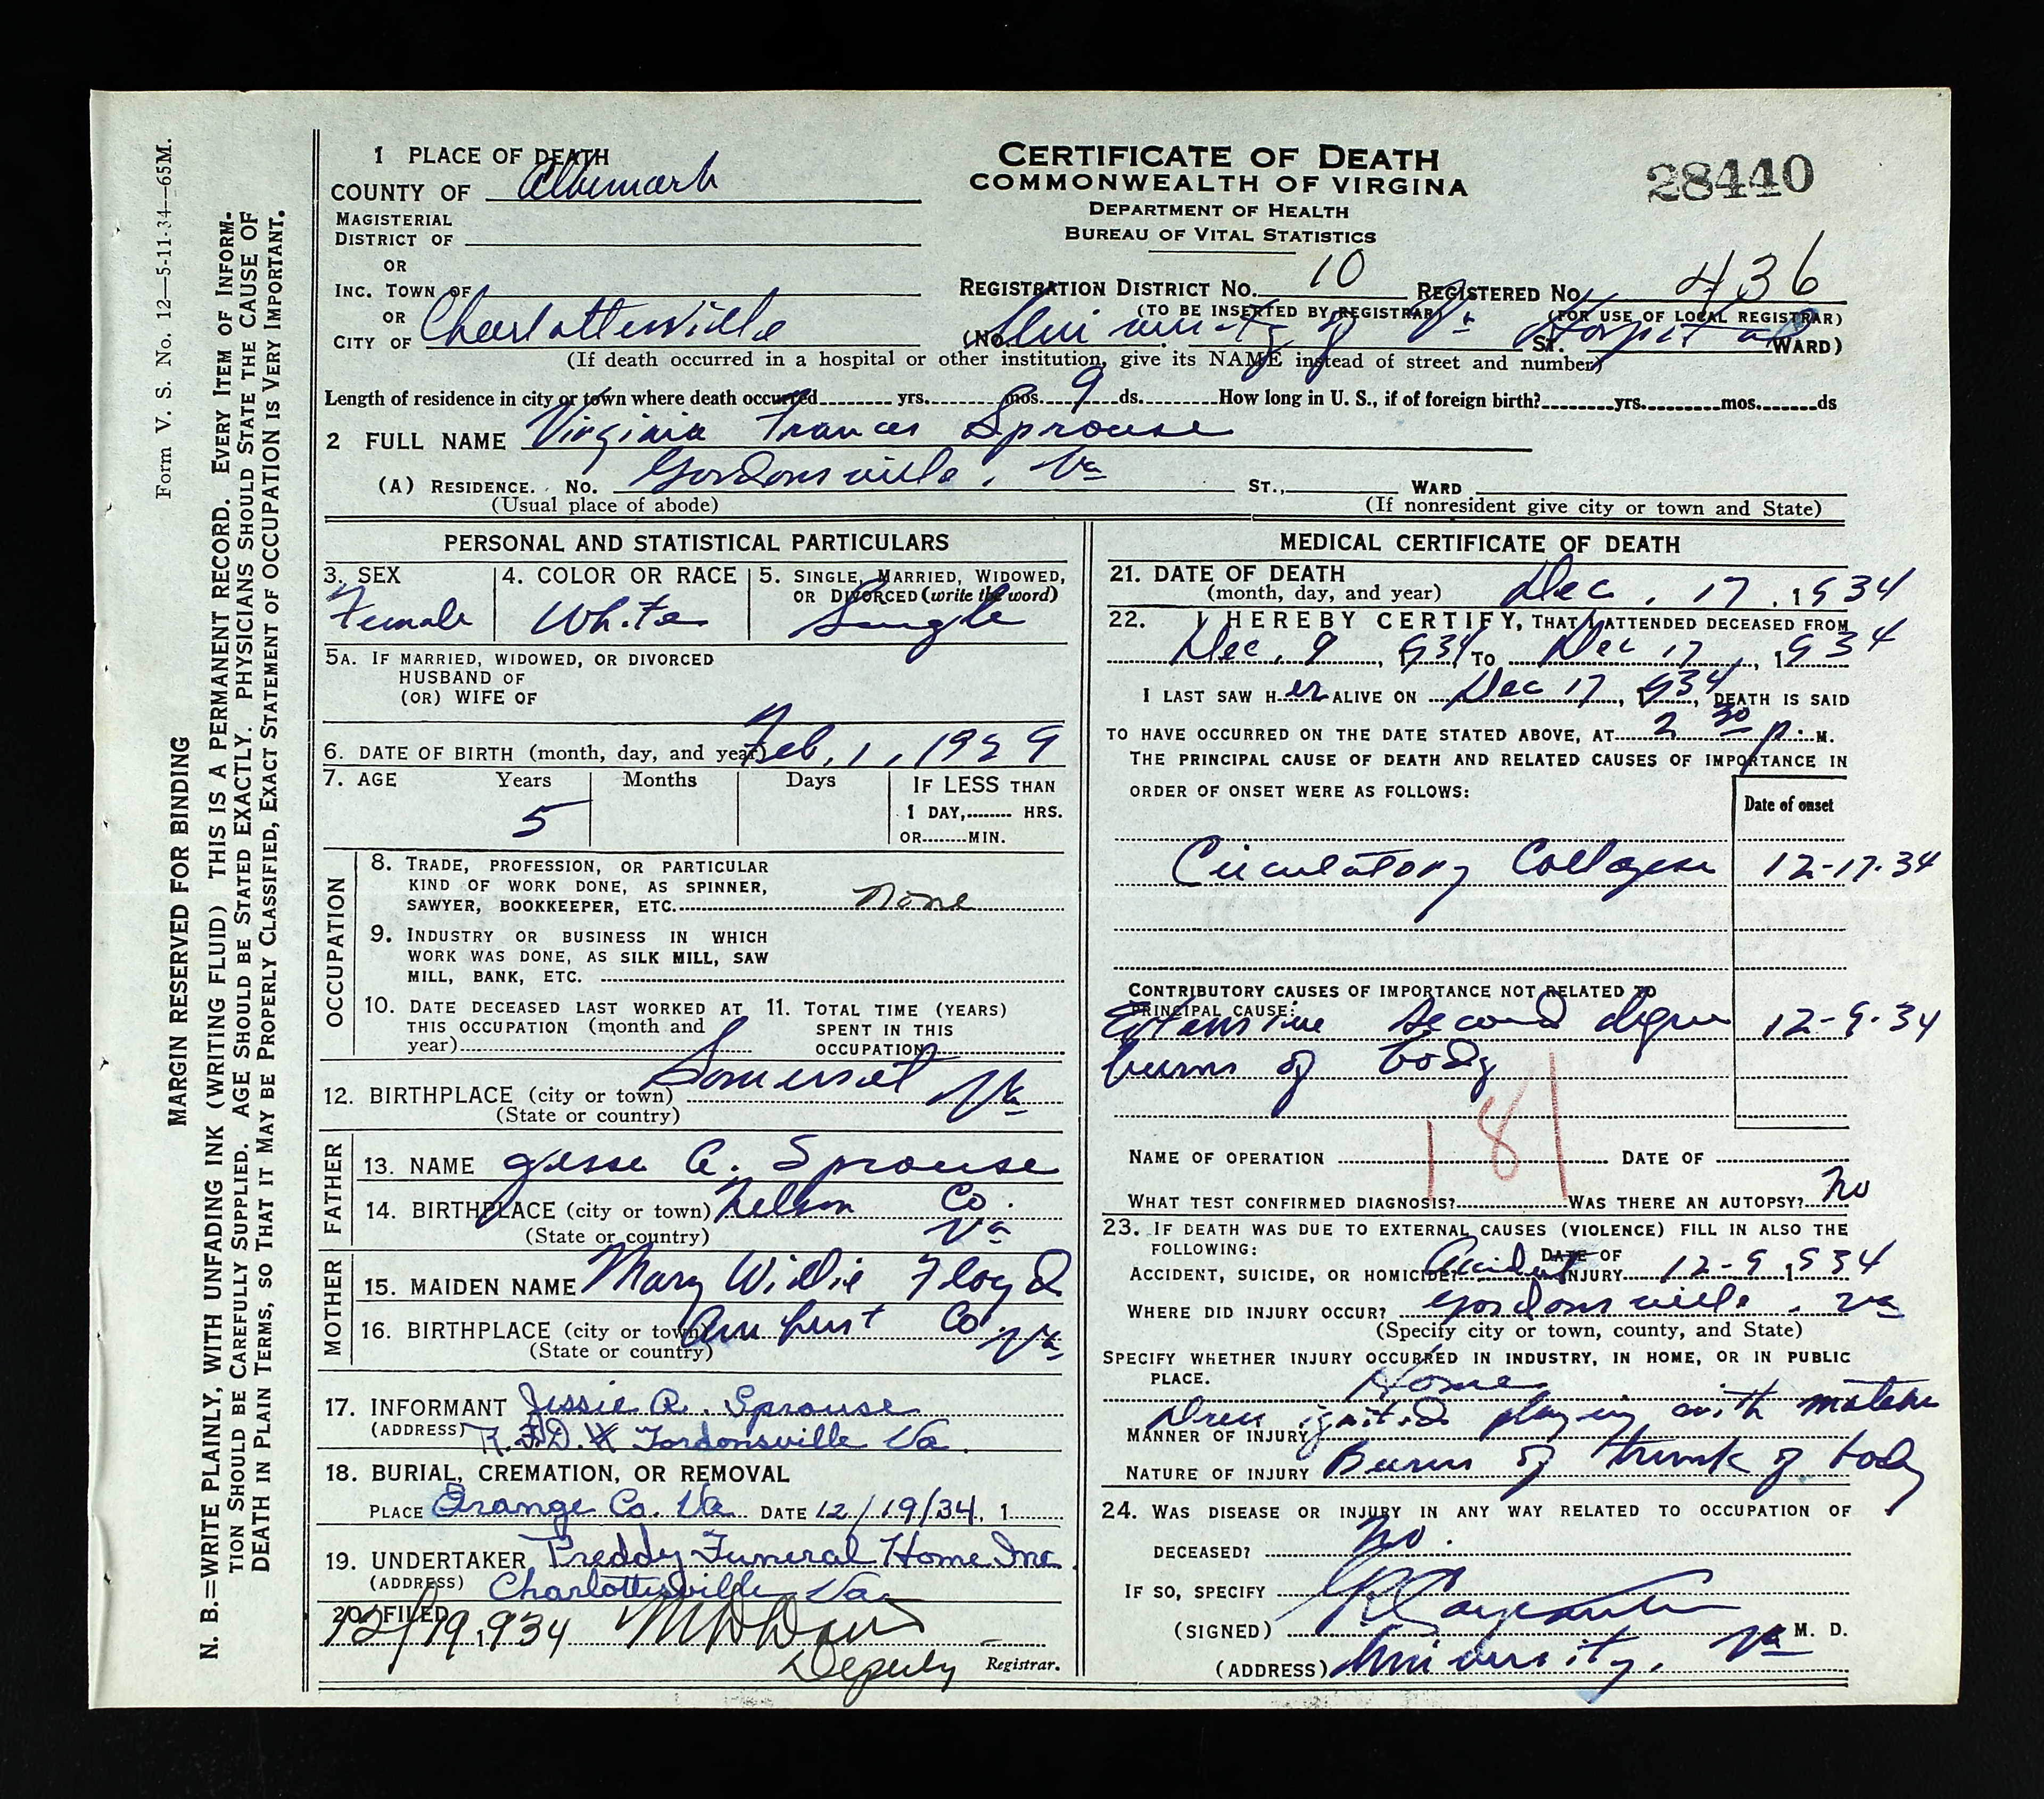 Form V. S. No. 12—5-11-34—65M.
MARGIN RESERVED FOR BINDING
N. B.=WRITE PLAINLY, WITH UNFADING INK (WRITING FLUID) THIS IS A PERMANENT RECORD. EVERY ITEM OF INFORM-
TION SHOULD BE CAREFULLY SUPPLIED. AGE SHOULD BE STATED EXACTLY. PHYSICIANS SHOULD STATE THE CAUSE OF
DEATH IN PLAIN TERMS, SO THAT IT MAY BE PROPERLY CLASSIFIED, EXACT STATEMENT OF OCCUPATION IS VERY IMPORTANT.
CERTIFICATE OF DEATH
COMMONWEALTH OF VIRGINA
DEPARTMENT OF HEALTH
BUREAU OF VITAL STATISTICS
28440
1 PLACE OF DEATH
COUNTY OF Albemarle
MAGISTERIAL
DISTRICT OF
OR
INC. TOWN OF
OR
CITY OF Charlottesville
REGISTRATION DISTRICT NO. 10 REGISTERED NO. 436
(TO BE INSERTED BY REGISTRAR) (FOR USE OF LOCAL REGISTRAR)
(NO. University of Va Hospital ST. WARD)
(If death occurred in a hospital or other institution, give its NAME instead of street and number)
Length of residence in city or town where death occurred yrs. mos. 9 ds. How long in U. S., if of foreign birth? yrs. mos. ds
2 FULL NAME Virginia Frances Sprouse
(A) RESIDENCE. NO. Gordonsville, Va ST., WARD
(Usual place of abode) (If nonresident give city or town and State)
PERSONAL AND STATISTICAL PARTICULARS
3. SEX
Female
4. COLOR OR RACE
White
5. SINGLE, MARRIED, WIDOWED,
OR DIVORCED (write the word)
Single
5A. IF MARRIED, WIDOWED, OR DIVORCED
HUSBAND OF
(OR) WIFE OF
6. DATE OF BIRTH (month, day, and year) Feb, 1, 1929
7. AGE Years Months Days IF LESS THAN
5
1 DAY, HRS.
OR MIN.
OCCUPATION
8. TRADE, PROFESSION, OR PARTICULAR
KIND OF WORK DONE, AS SPINNER,
SAWYER, BOOKKEEPER, ETC. None
9. INDUSTRY OR BUSINESS IN WHICH
WORK WAS DONE, AS SILK MILL, SAW
MILL, BANK, ETC.
10. DATE DECEASED LAST WORKED AT
THIS OCCUPATION (month and
year)
11. TOTAL TIME (YEARS)
SPENT IN THIS
OCCUPATION
12. BIRTHPLACE (city or town) Somerset Va
(State or country)
FATHER
13. NAME Jesse A. Sprouse
14. BIRTHPLACE (city or town) Nelson Co.
(State or country) Va
MOTHER
15. MAIDEN NAME Mary Willie Floyd
16. BIRTHPLACE (city or town) Amherst Co. Va
(State or country)
17. INFORMANT Jessie A. Sprouse
(ADDRESS) R.F.D. Gordonsville Va.
18. BURIAL, CREMATION, OR REMOVAL
PLACE Orange Co. Va DATE 12/19/34, 1
19. UNDERTAKER Preddy Funeral Home Inc.
(ADDRESS) Charlottesville Va.
20. FILED
12/19, 1934
Deputy Registrar.
MEDICAL CERTIFICATE OF DEATH
21. DATE OF DEATH
(month, day, and year) Dec. 17, 1934
22. I HEREBY CERTIFY, THAT I ATTENDED DECEASED FROM
Dec. 9, 1934 TO Dec 17, 1934
I LAST SAW HER ALIVE ON Dec 17, 1934, DEATH IS SAID
TO HAVE OCCURRED ON THE DATE STATED ABOVE, AT 2 30 p. M.
THE PRINCIPAL CAUSE OF DEATH AND RELATED CAUSES OF IMPORTANCE IN
ORDER OF ONSET WERE AS FOLLOWS:
Date of onset
Circulatory Collapse 12-17-34
CONTRIBUTORY CAUSES OF IMPORTANCE NOT RELATED TO
PRINCIPAL CAUSE:
Extensive second degree 12-9-34
burns of body
181
NAME OF OPERATION DATE OF
WHAT TEST CONFIRMED DIAGNOSIS? WAS THERE AN AUTOPSY? No
23. IF DEATH WAS DUE TO EXTERNAL CAUSES (VIOLENCE) FILL IN ALSO THE
FOLLOWING:
ACCIDENT, SUICIDE, OR HOMICIDE? Accident DATE OF INJURY 12-9, 1934
WHERE DID INJURY OCCUR? Gordonsville, Va
(Specify city or town, county, and State)
SPECIFY WHETHER INJURY OCCURRED IN INDUSTRY, IN HOME, OR IN PUBLIC
PLACE. Home
Dress ignited playing with matches
MANNER OF INJURY
NATURE OF INJURY Burns of trunk of body
24. WAS DISEASE OR INJURY IN ANY WAY RELATED TO OCCUPATION OF
DECEASED? No.
IF SO, SPECIFY
(SIGNED) M. D.
(ADDRESS) University, Va